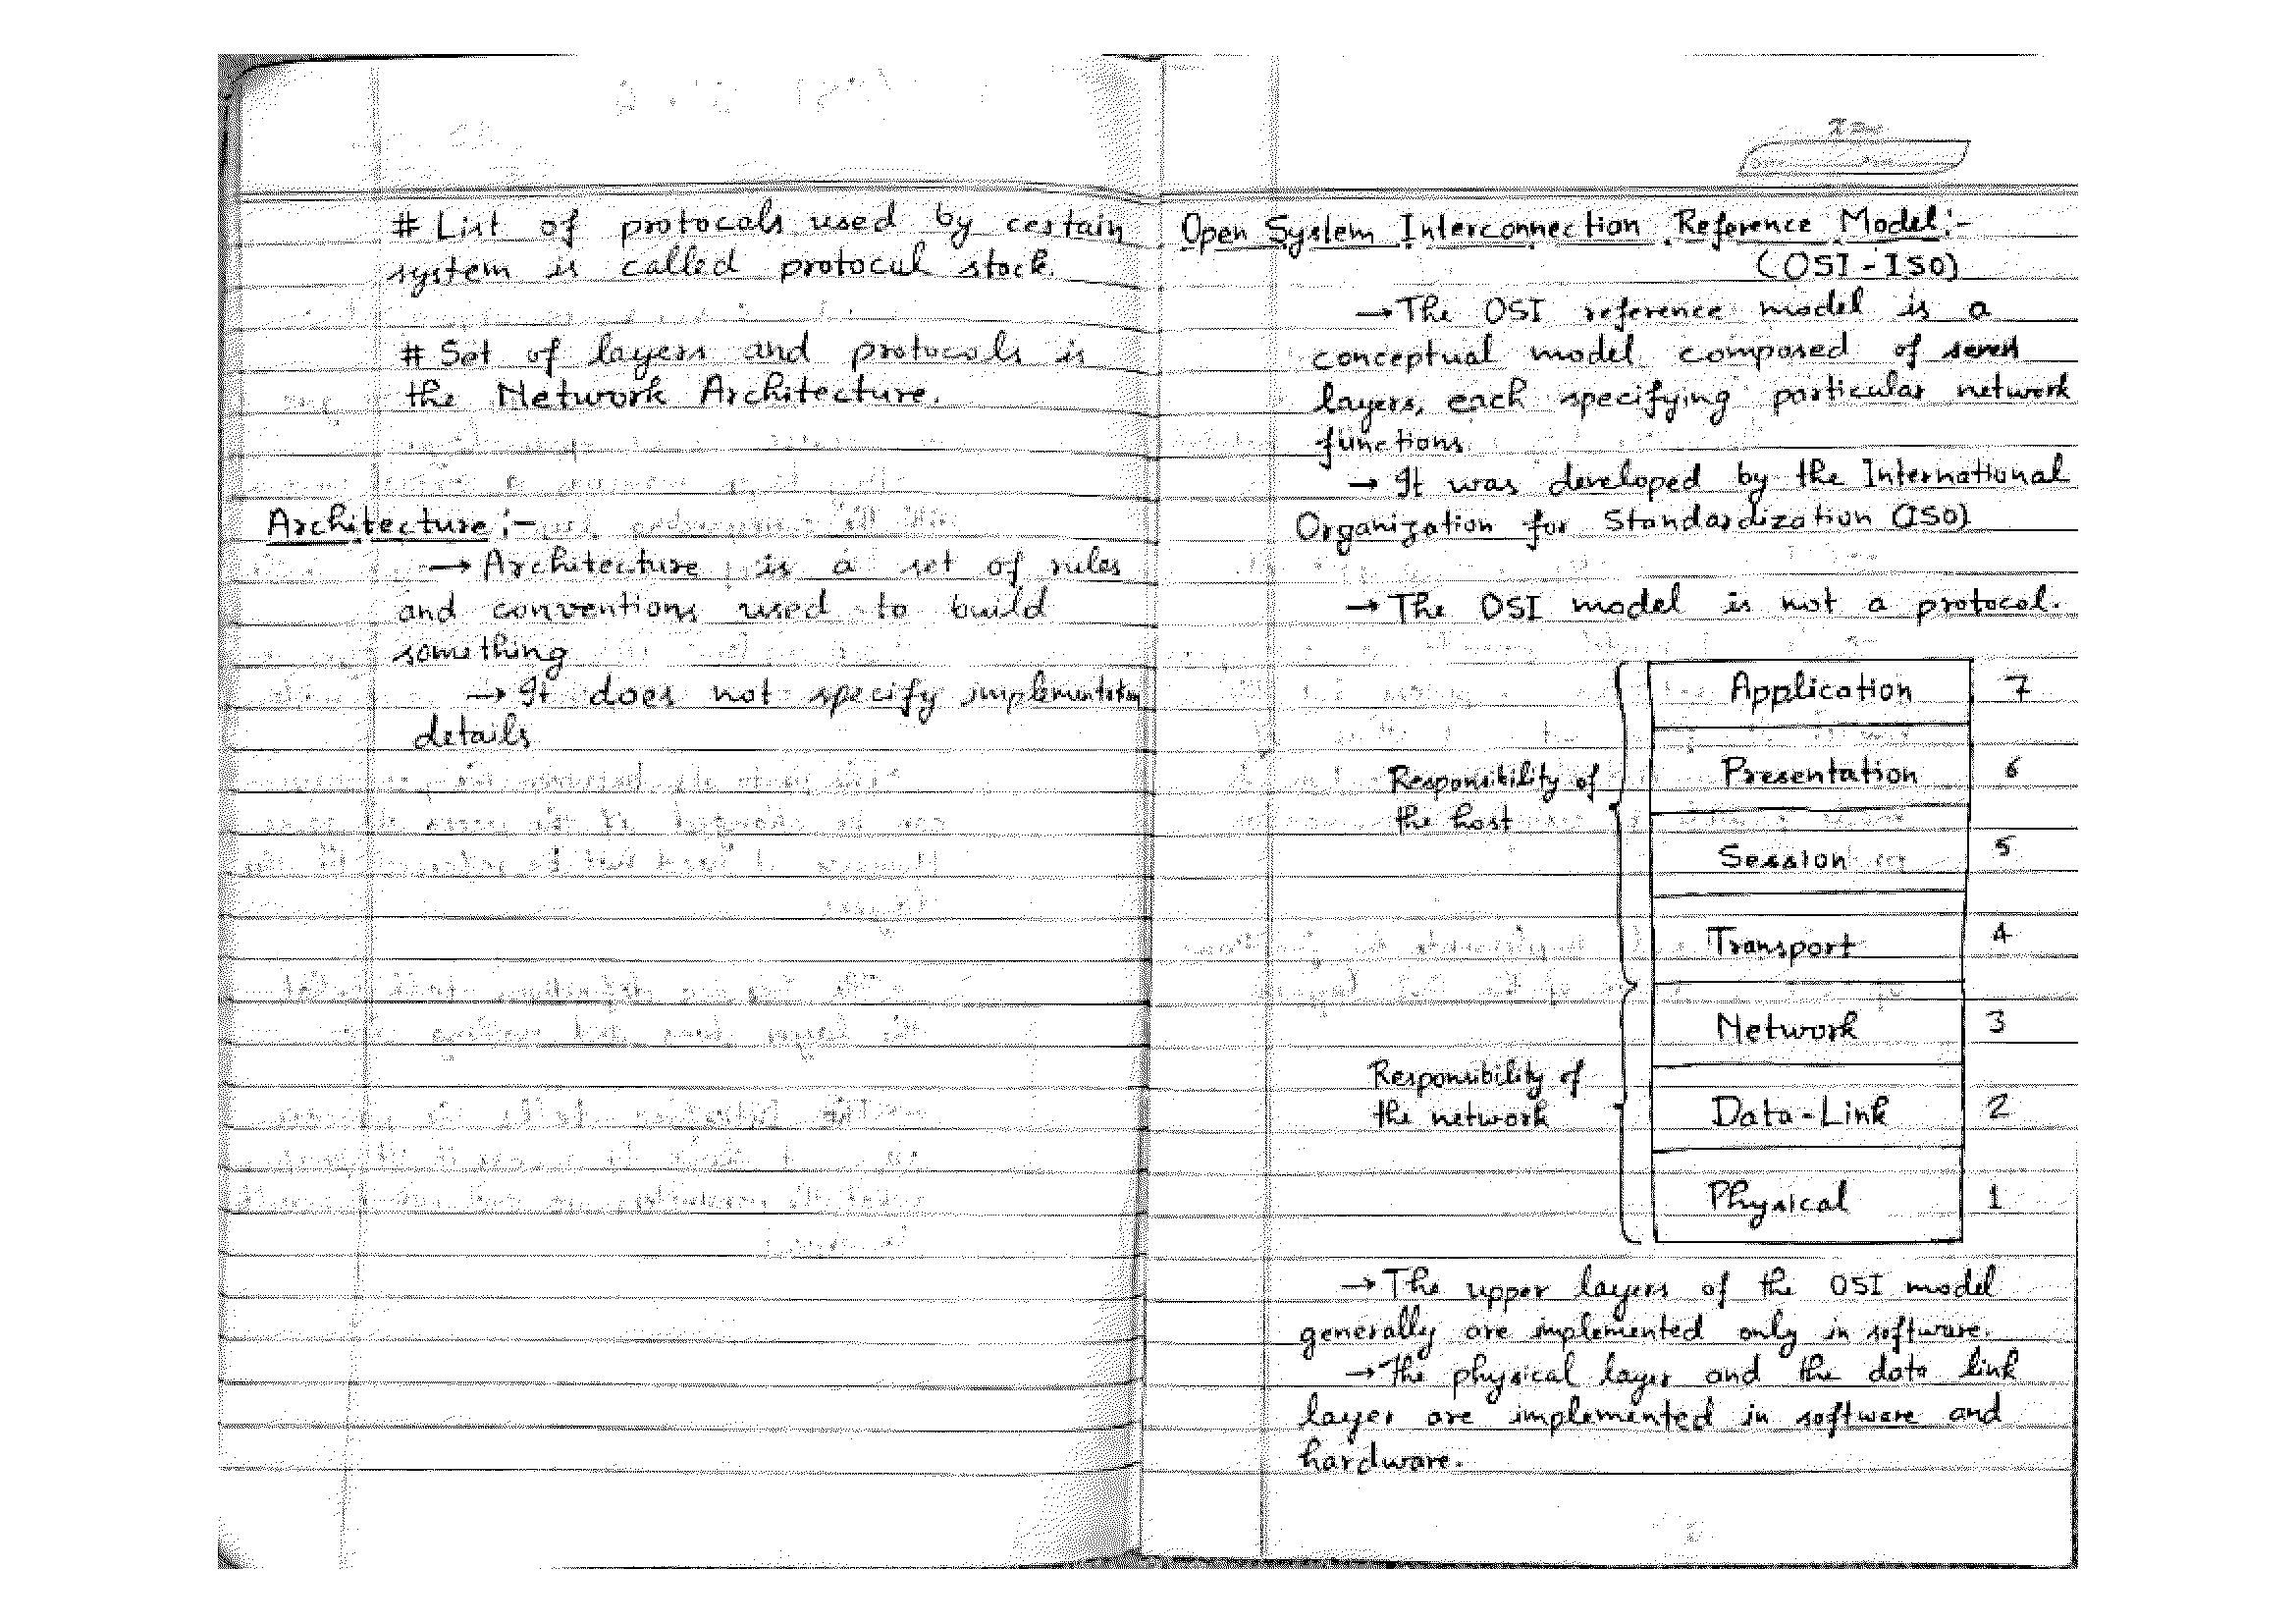 # List of protocals used by certain
system is called protocol stock.
# Set of layers and protocols is
the Network Architecture.
Architecture :-
→ Architecture is a set of rules
and conventions used to build
something
→ It does not specify implementation
details
Open System Interconnection Reference Model:-
(OSI-ISO)
→ The OSI reference model is a
conceptual model composed of seven
layers, each specifying particular network
functions.
→ It was developed by the International
Organization for Standardization (ISO)
→ The OSI model is not a protocol.
Application 7
Presentation 6
Responsibility of
the host
Session 5
Transport 4
Network 3
Responsibility of
the network
Data-Link 2
Physical 1
→ The upper layers of the OSI model
generally are implemented only in software.
→ The physical layer and the data link
layer are implemented in software and
hardware.